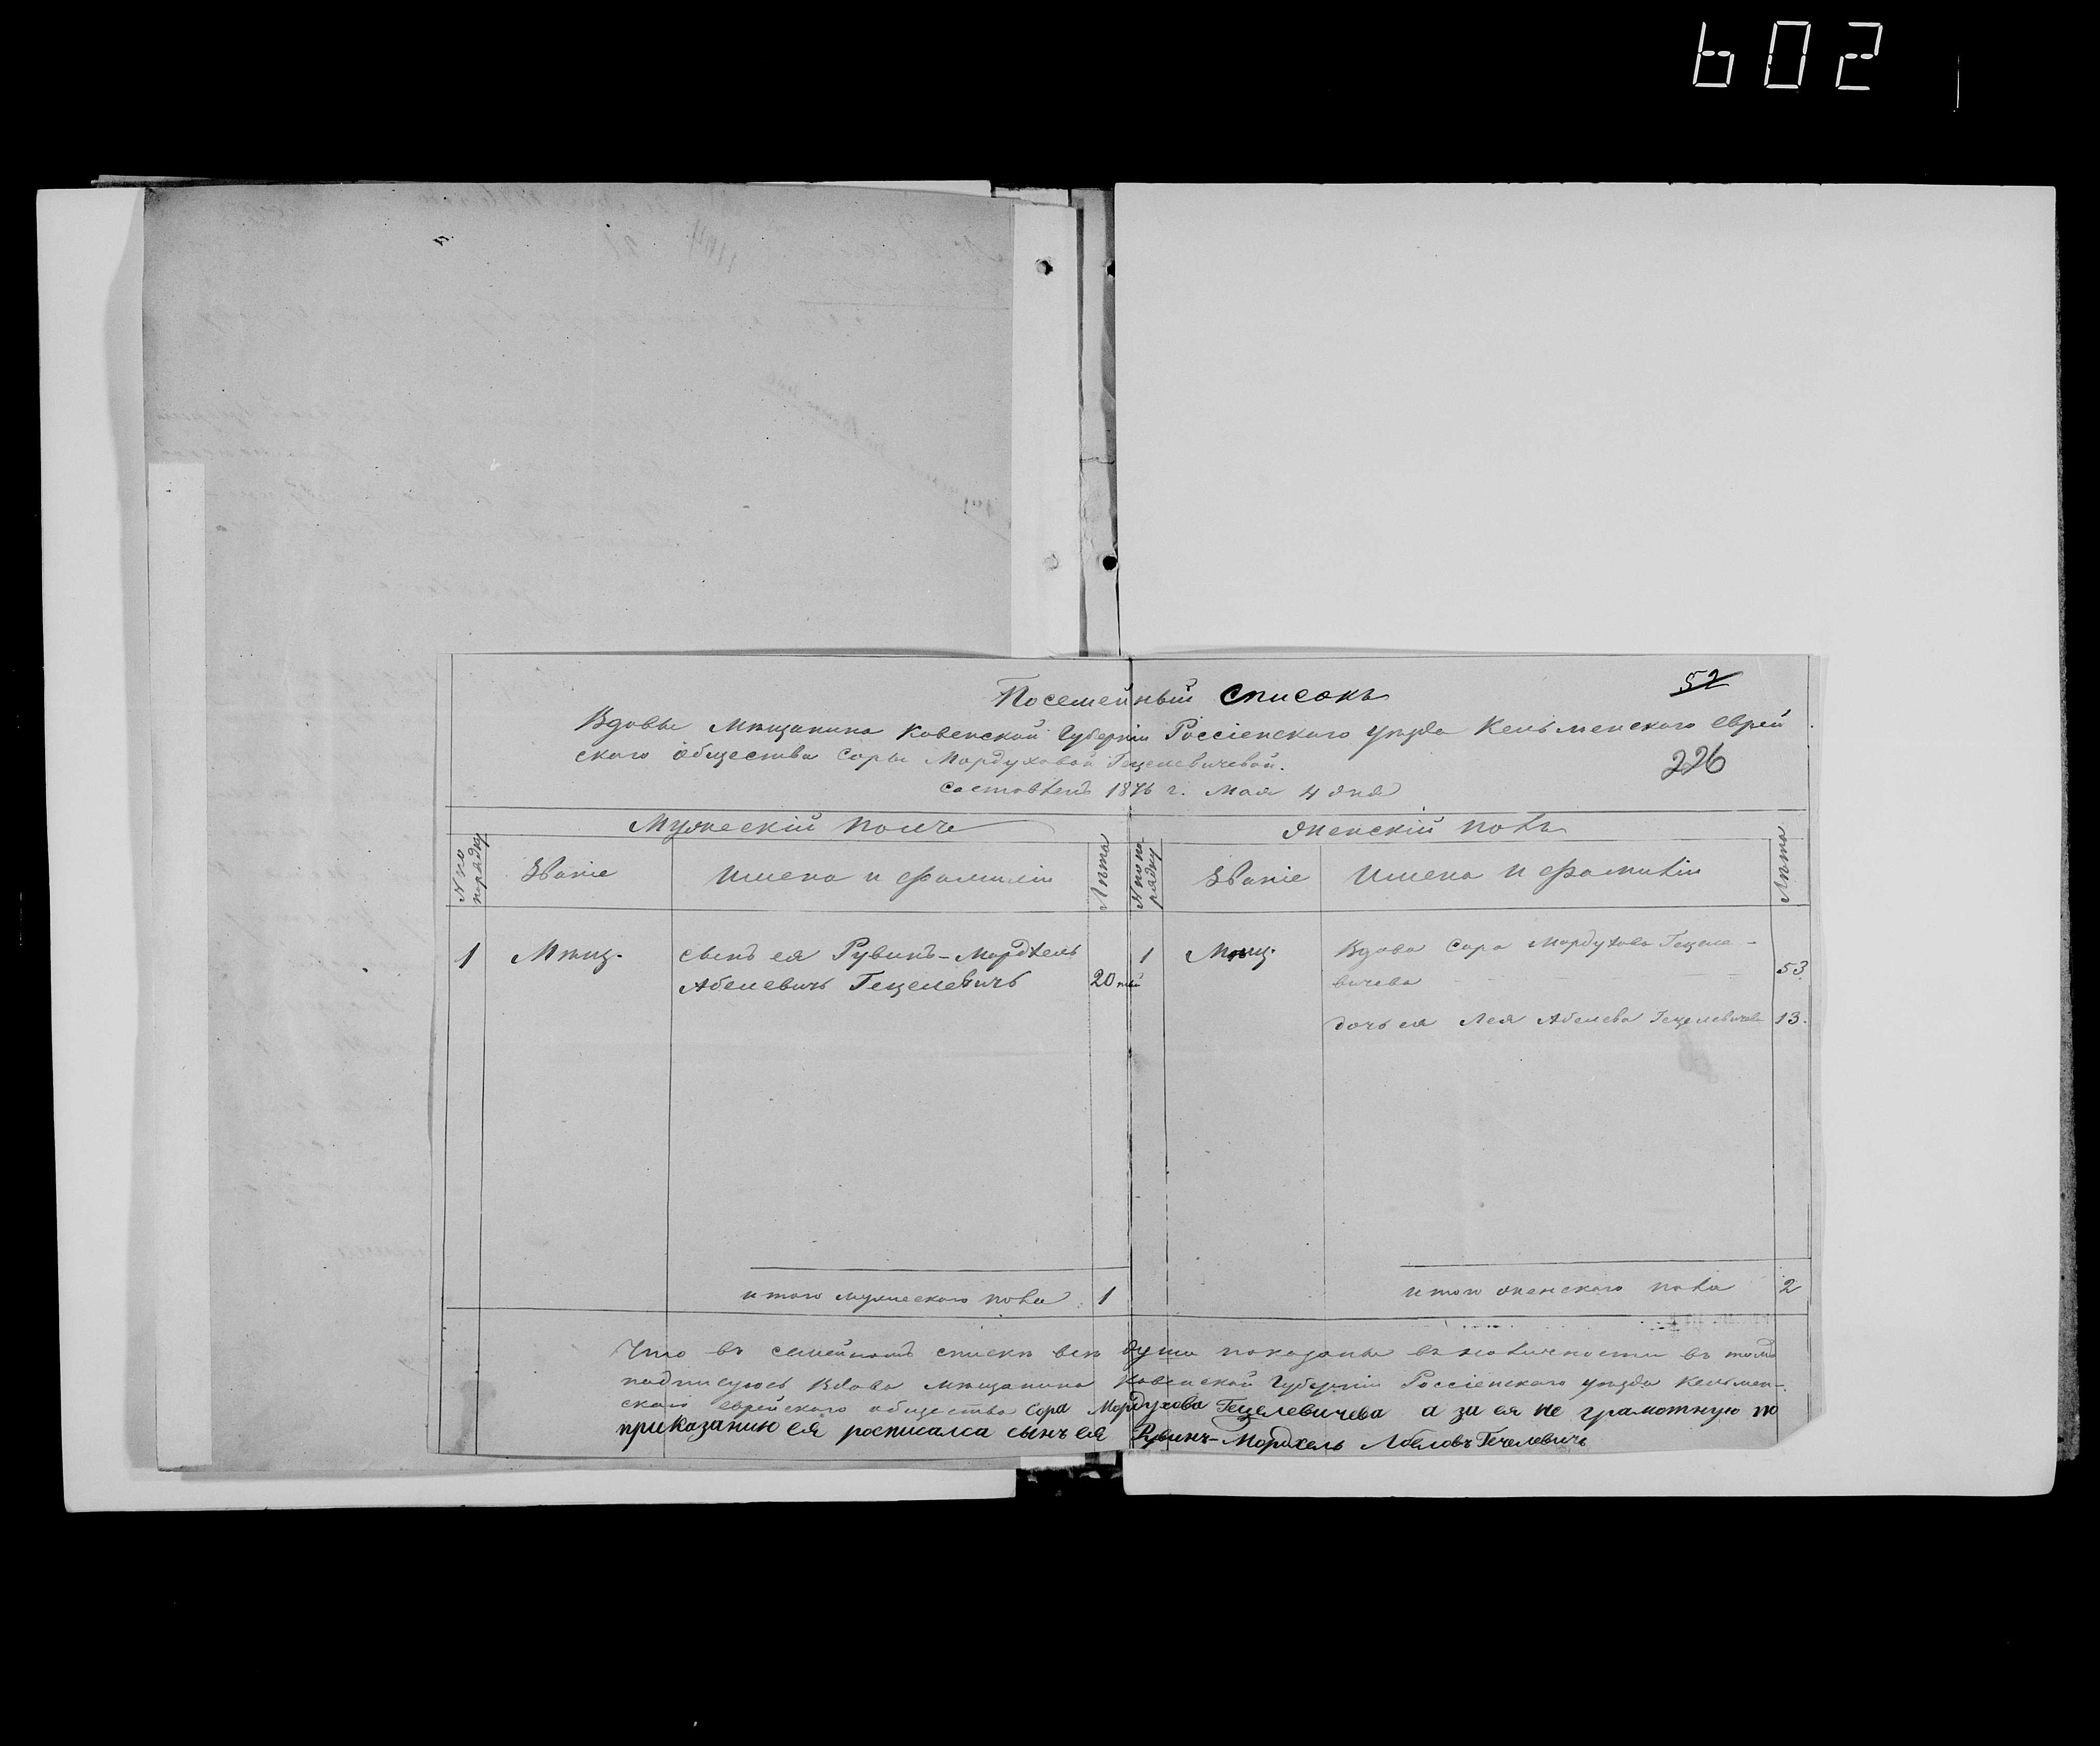 602
52
Посемейный списокъ
Вдовы Мѣщанина Ковенской Губерніи Россіенскаго уѣзда Кельменскаго Еврей
скаго общества Соры Мордуховой Гецелевичевой.
226
составленъ 1876 г. Мая 4 дня
Мужескій полъ
Женскій полъ
№ по порядку
Званіе
Имена и фамиліи
Лѣта
№ по порядку
Званіе
Имена и фамиліи
Лѣта
1 Мѣщ. сынъ ея Рувинъ-Мордхель
Абелевичъ Гецелевичъ 20
1 Мѣщ. Вдова Сора Мордухова Гецеле-
вичева 53.
дочь ея Лея Абелева Гецелевичева 13.
итого мужескаго пола 1
итого женскаго пола 2
Что въ семейномъ спискѣ всѣ души показаны въ наличности въ томъ
подписуюсь Вдова мѣщанина Ковенской Губерніи Россіенскаго уѣзда Кельмен-
скаго еврейскаго общества Сора Мордухова Гецелевичева а за ея не грамотную по
приказанию ея росписался сынъ ея Рувинъ-Мордхель Абеловъ Гечелевичъ